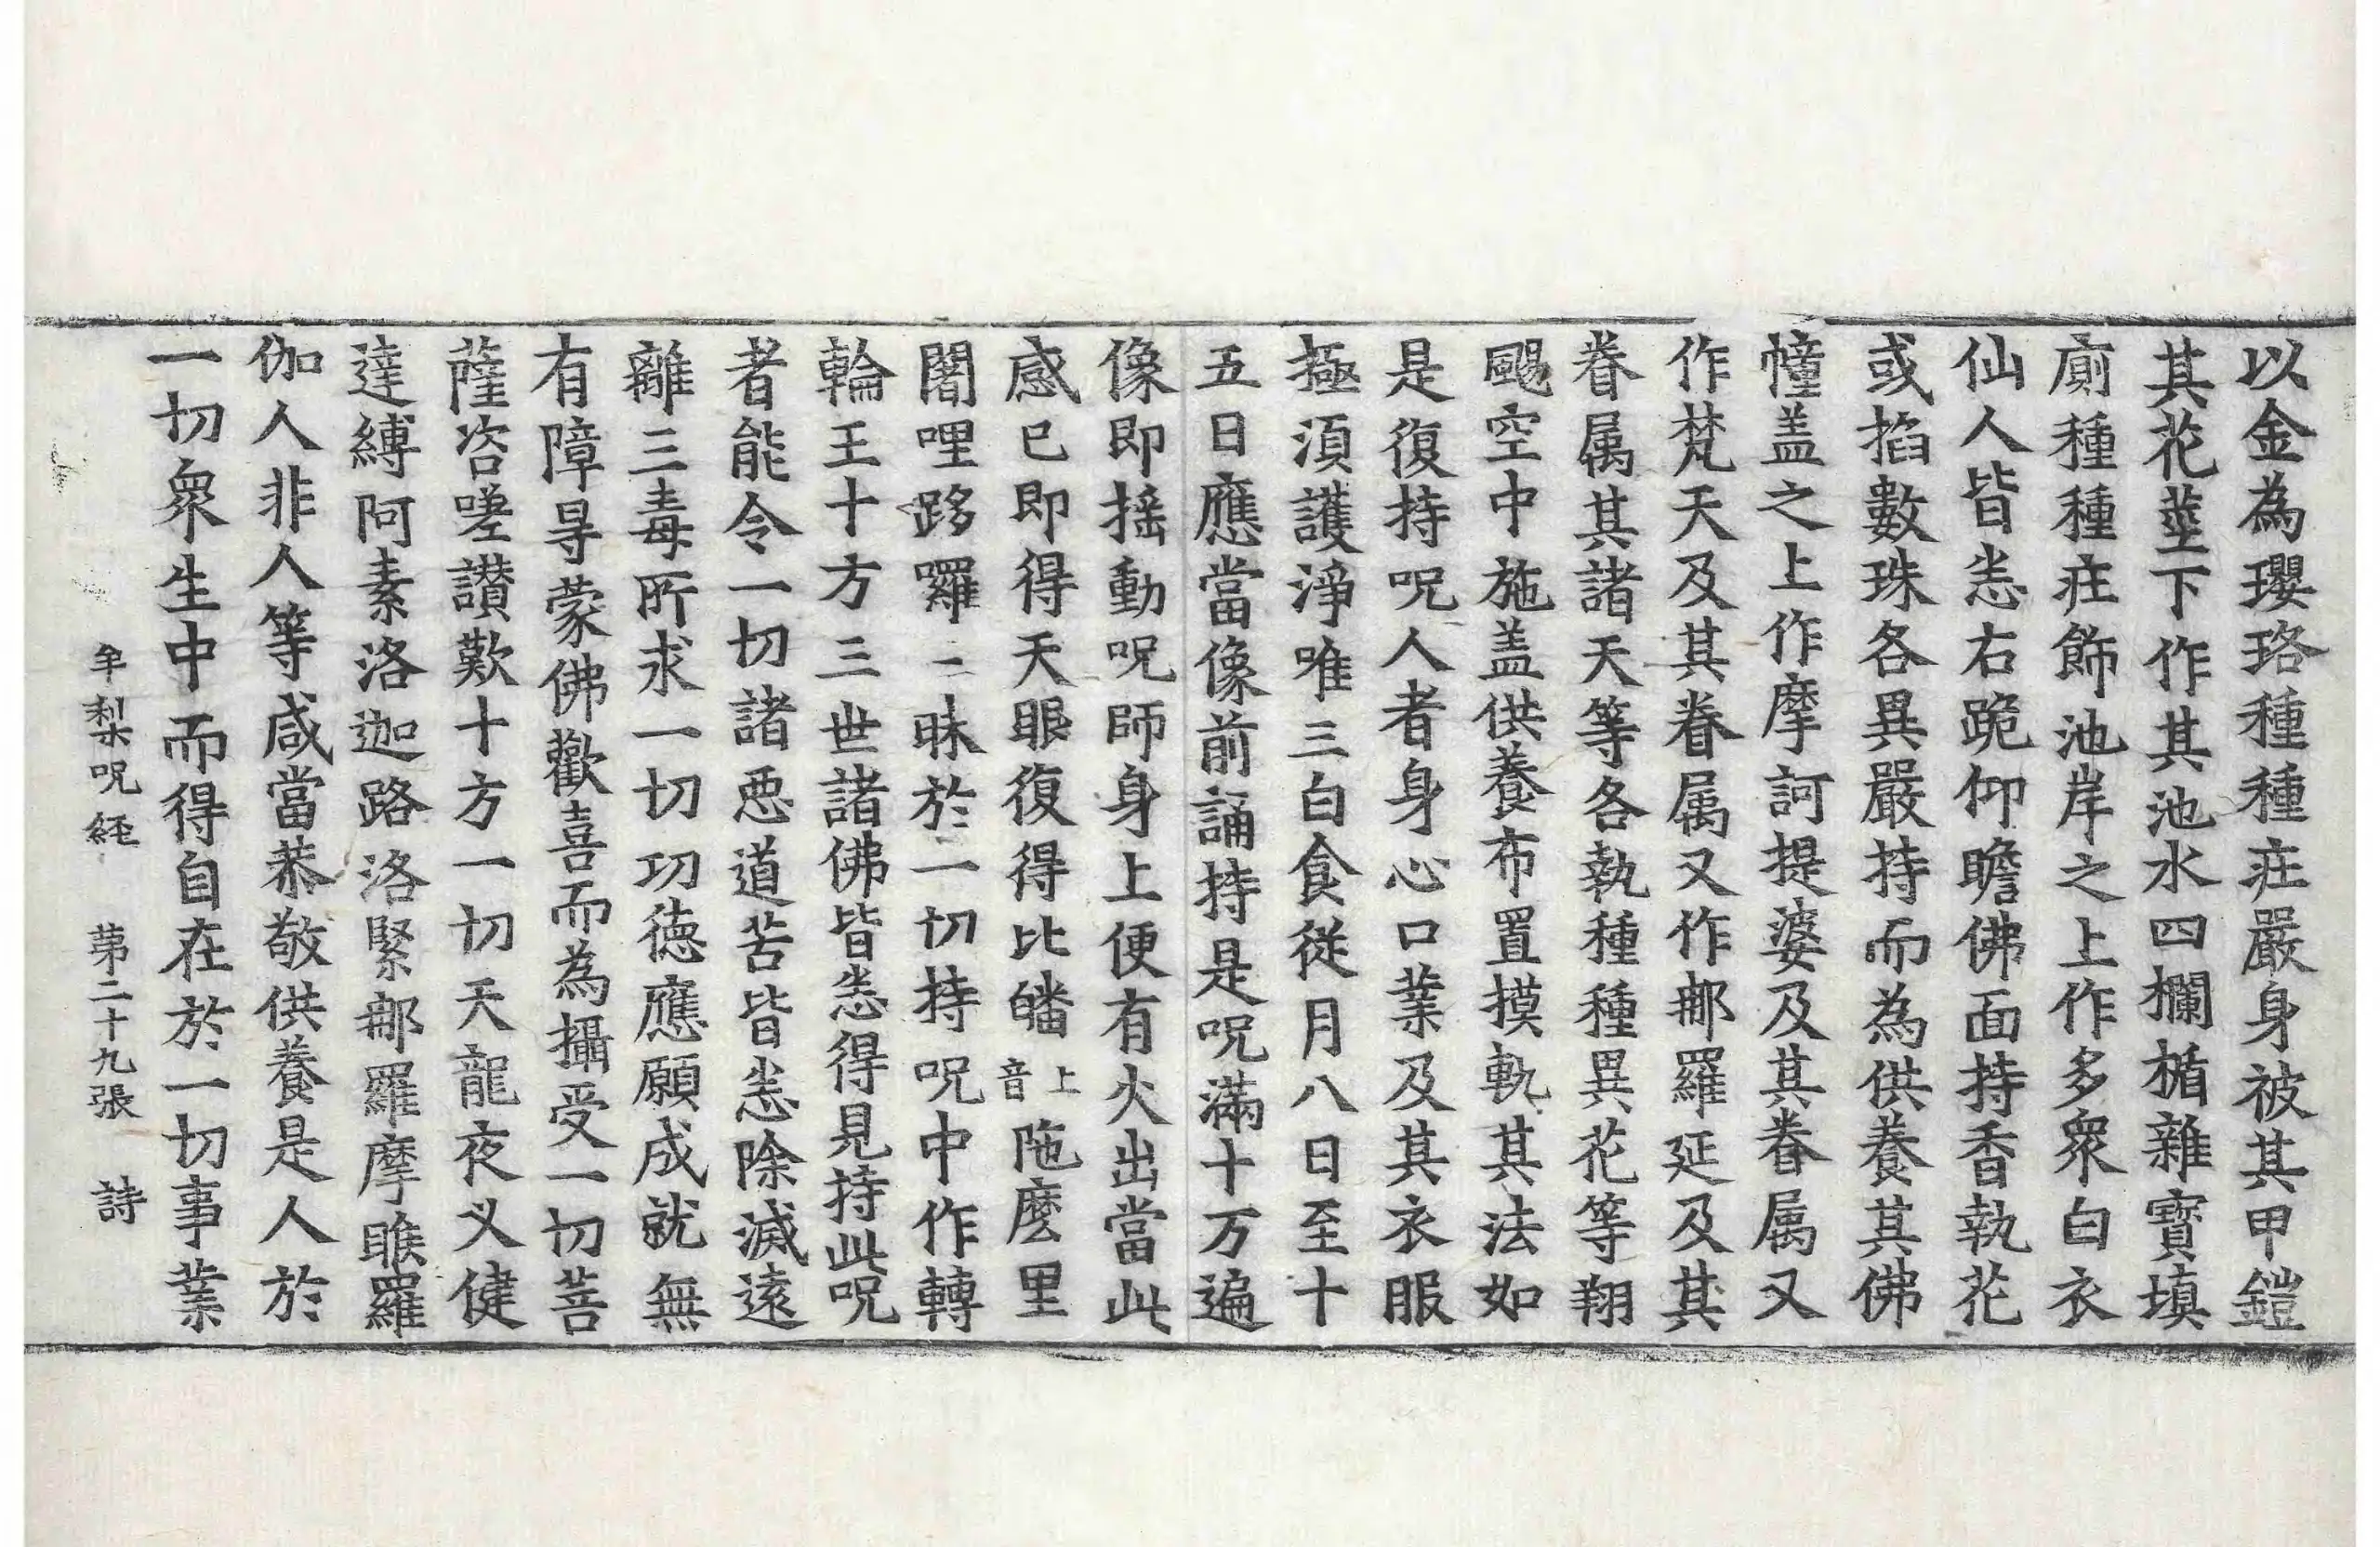 以金為瓔珞種種疘嚴身被其甲鎧
其花莖下作其池水四欄楯雜寶填
廁種種疘飾池岸之上作多衆白衣
仙人皆悉右跪仰瞻佛面持香執花
或掐數珠各異嚴持而為供養其佛
幢盖之上作摩訶提婆及其眷属又
作梵天及其眷属又作那羅延及其
眷属其諸天等各執種種異花等翔
颺空中施盖供養布置摸軌其法如
是復持呪人者身心口業及其衣服
極湏護淨唯三白食従月八日至十
五日應當像前誦持是呪滿十万遍
像即揺動呪師身上便有火出當此
感已即得天眼復得比皤上音陁麽里
闍哩跢囉二昧於一切持呪中作轉
輪王十方三世諸佛皆悉得見持此呪
者能令一切諸惡道苦皆悉除滅遠
離三毒所求一切功徳應願成就無
有障㝵蒙佛歡喜而為攝受一切菩
薩咨嗟讃歎十方一切天龍夜义健
達縛阿素洛迦路洛緊那羅摩睺羅
伽人非人等咸當恭敬供養是人於
一切衆生中而得自在於一切事業
牟梨呪経 第二十九張 詩